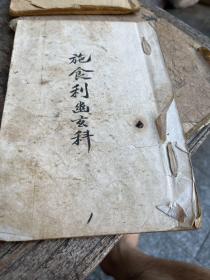 施食利幽玄科